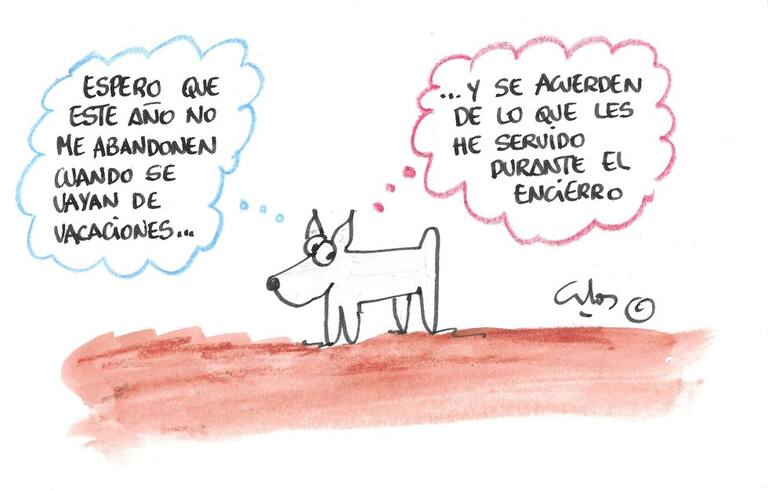 ESPERO QUE
ESTE AÑO NO
ME ABANDONEN
CUANDO SE
VAYAN DE
VACACIONES...
...Y SE ACUERDEN
DE LO QUE LES
HE SERVIDO
DURANTE EL
ENCIERRO
©